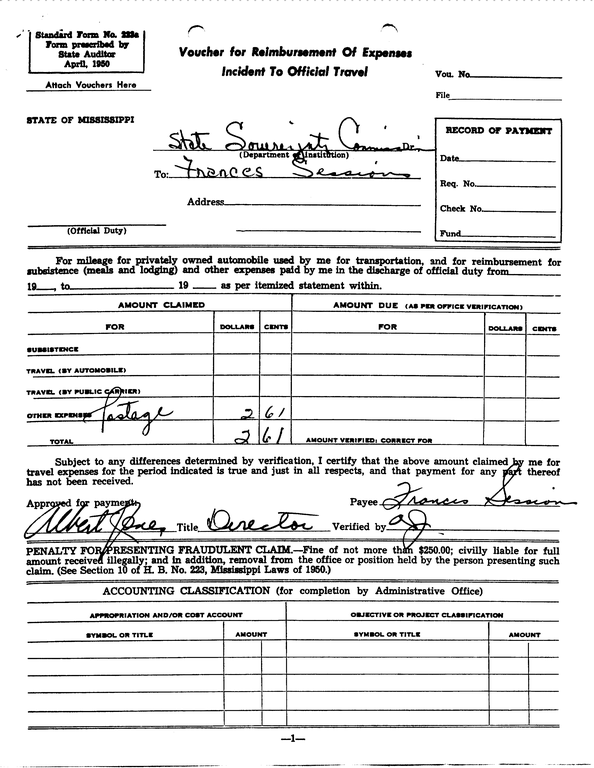 Standard Form No. 223a
Form prescribed by
State Auditor
April, 1950
Attach Vouchers Here
Voucher for Reimbursement Of Expenses
Incident To Official Travel
Vou. No.
File
STATE OF MISSISSIPPI
State Sovereignty Commission
Dr.
(Department or Institution)
To: Frances Sessions
Address
(Official Duty)
RECORD OF PAYMENT
Date
Req. No.
Check No.
Fund
For mileage for privately owned automobile used by me for transportation, and for reimbursement for
subsistence (meals and lodging) and other expenses paid by me in the discharge of official duty from
19 , to 19 as per itemized statement within.
AMOUNT CLAIMED AMOUNT DUE (AS PER OFFICE VERIFICATION)
FOR DOLLARS CENTS FOR DOLLARS CENTS
SUBSISTENCE
TRAVEL (BY AUTOMOBILE)
TRAVEL (BY PUBLIC CARRIER)
OTHER EXPENSES Postage 2 61
TOTAL 2 61 AMOUNT VERIFIED: CORRECT FOR
Subject to any differences determined by verification, I certify that the above amount claimed by me for
travel expenses for the period indicated is true and just in all respects, and that payment for any part thereof
has not been received.
Approved for payment: Payee Frances Session
Albert Jones Title Director Verified by AJ
PENALTY FOR PRESENTING FRAUDULENT CLAIM.—Fine of not more than $250.00; civilly liable for full
amount received illegally; and in addition, removal from the office or position held by the person presenting such
claim. (See Section 10 of H. B. No. 223, Mississippi Laws of 1950.)
ACCOUNTING CLASSIFICATION (for completion by Administrative Office)
APPROPRIATION AND/OR COST ACCOUNT OBJECTIVE OR PROJECT CLASSIFICATION
SYMBOL OR TITLE AMOUNT SYMBOL OR TITLE AMOUNT
—1—